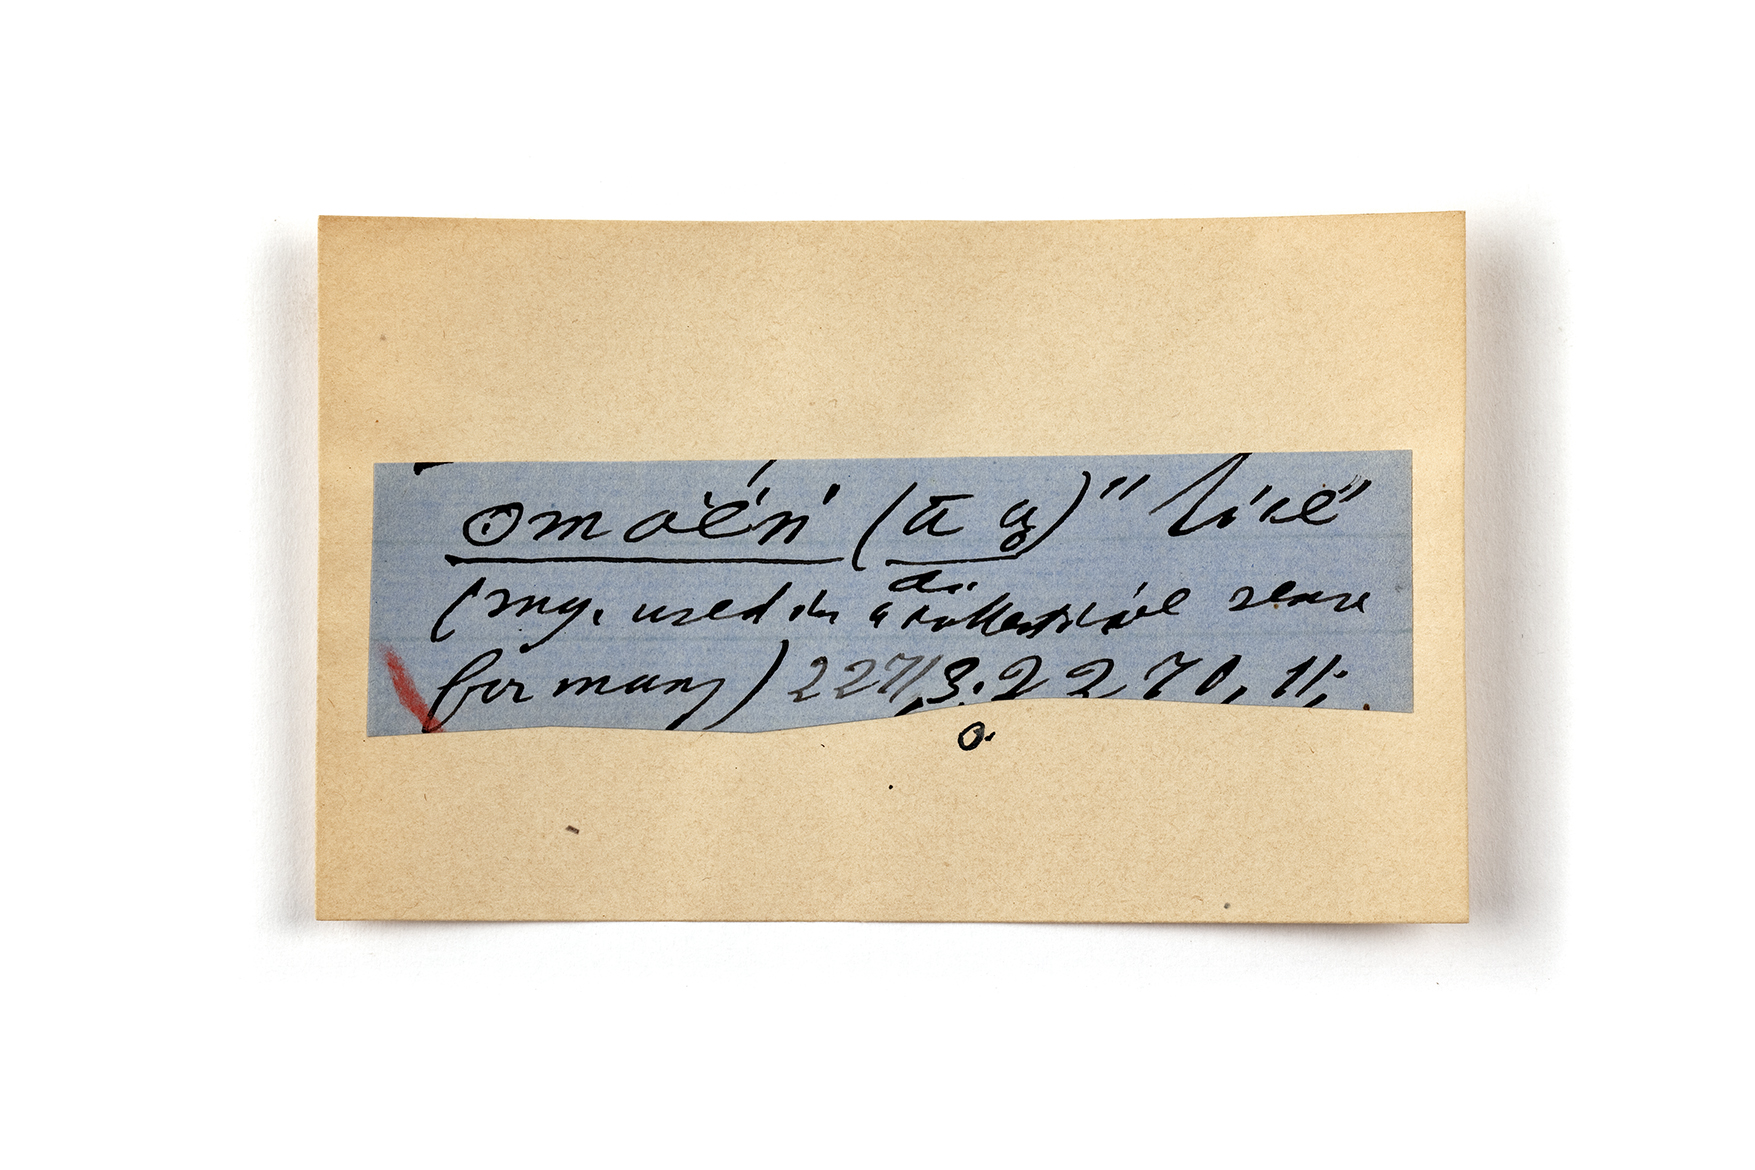 omačĕ́ni (ā ą) "lice"
ai
(sing. used in a collective sense
for many) 2271, 3. 2270, 11;
o.